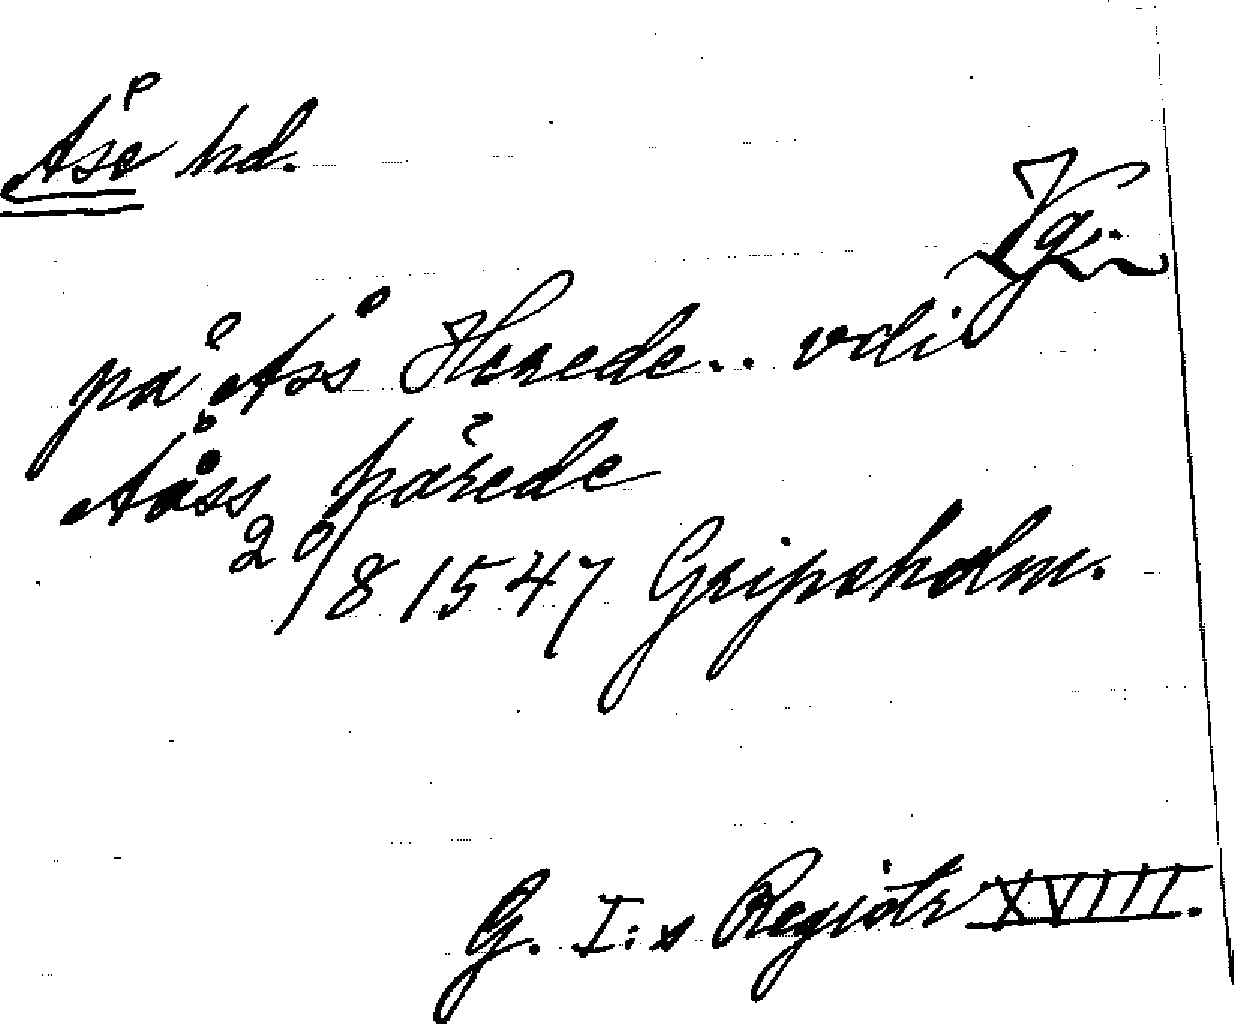 Åse hd.
Vg.
på Åss Herede.. vdi
Aåss härede
20/8 1547 Gripsholm.
G. I:s Registr XVIII.